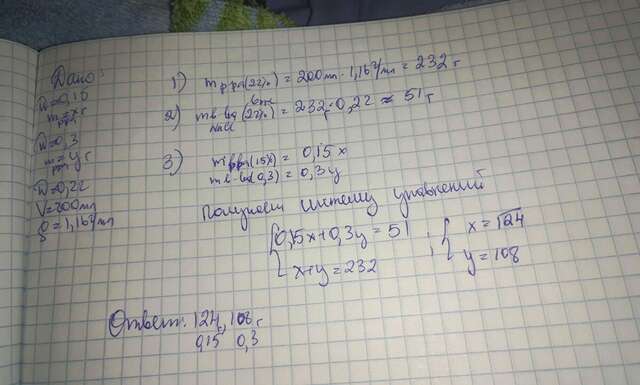 Дано:
W=0,15
m=x г
р-ра
W=0,3
m=y г
р-ра
W=0,22
V=200мл
ρ=1,16г/мл
1) m р-ра(22%) = 200мл · 1,16г/мл = 232 г
2) m в-ва(22%) = 232 · 0,22 ≈ 51 г
NaCl
3) m р-ра(15%) = 0,15 x
m в-ва(0,3) = 0,3 y
Получаем систему уравнений
0,15x+0,3y = 51
x+y = 232
x = 124
y = 108
Ответ: 124г, 108г
0,15 0,3